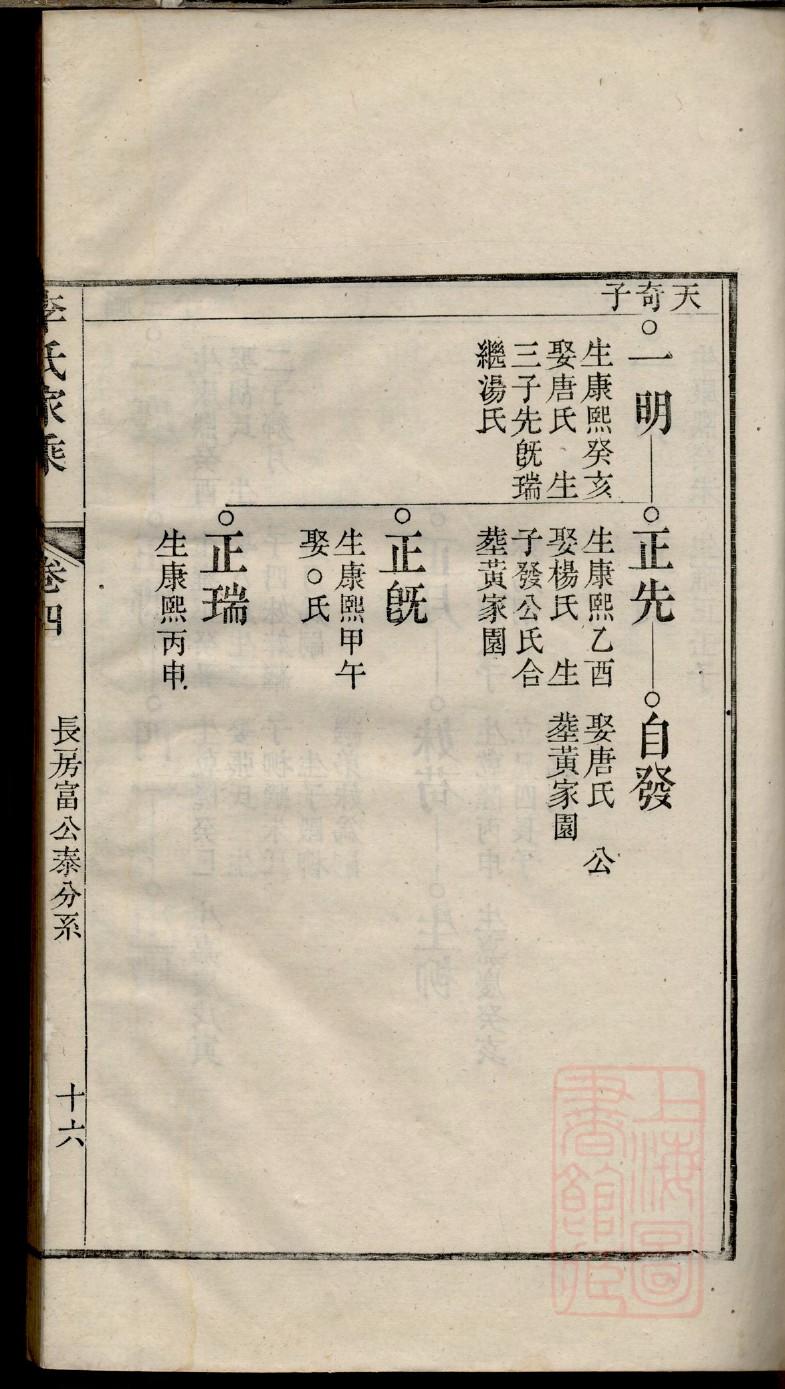 天奇子
一明
生康熙癸亥
娶唐氏 生
三子先旣瑞
繼湯氏
正先
生康熙乙酉
娶楊氏 生
子發公氏合
塟黃家園
自發
娶唐氏 公
塟黃家園
正旣
生康熙甲午
娶○氏
正瑞
生康熙丙申
李氏家乘
卷四
長房富公泰分系
十六
上海圖
書館藏